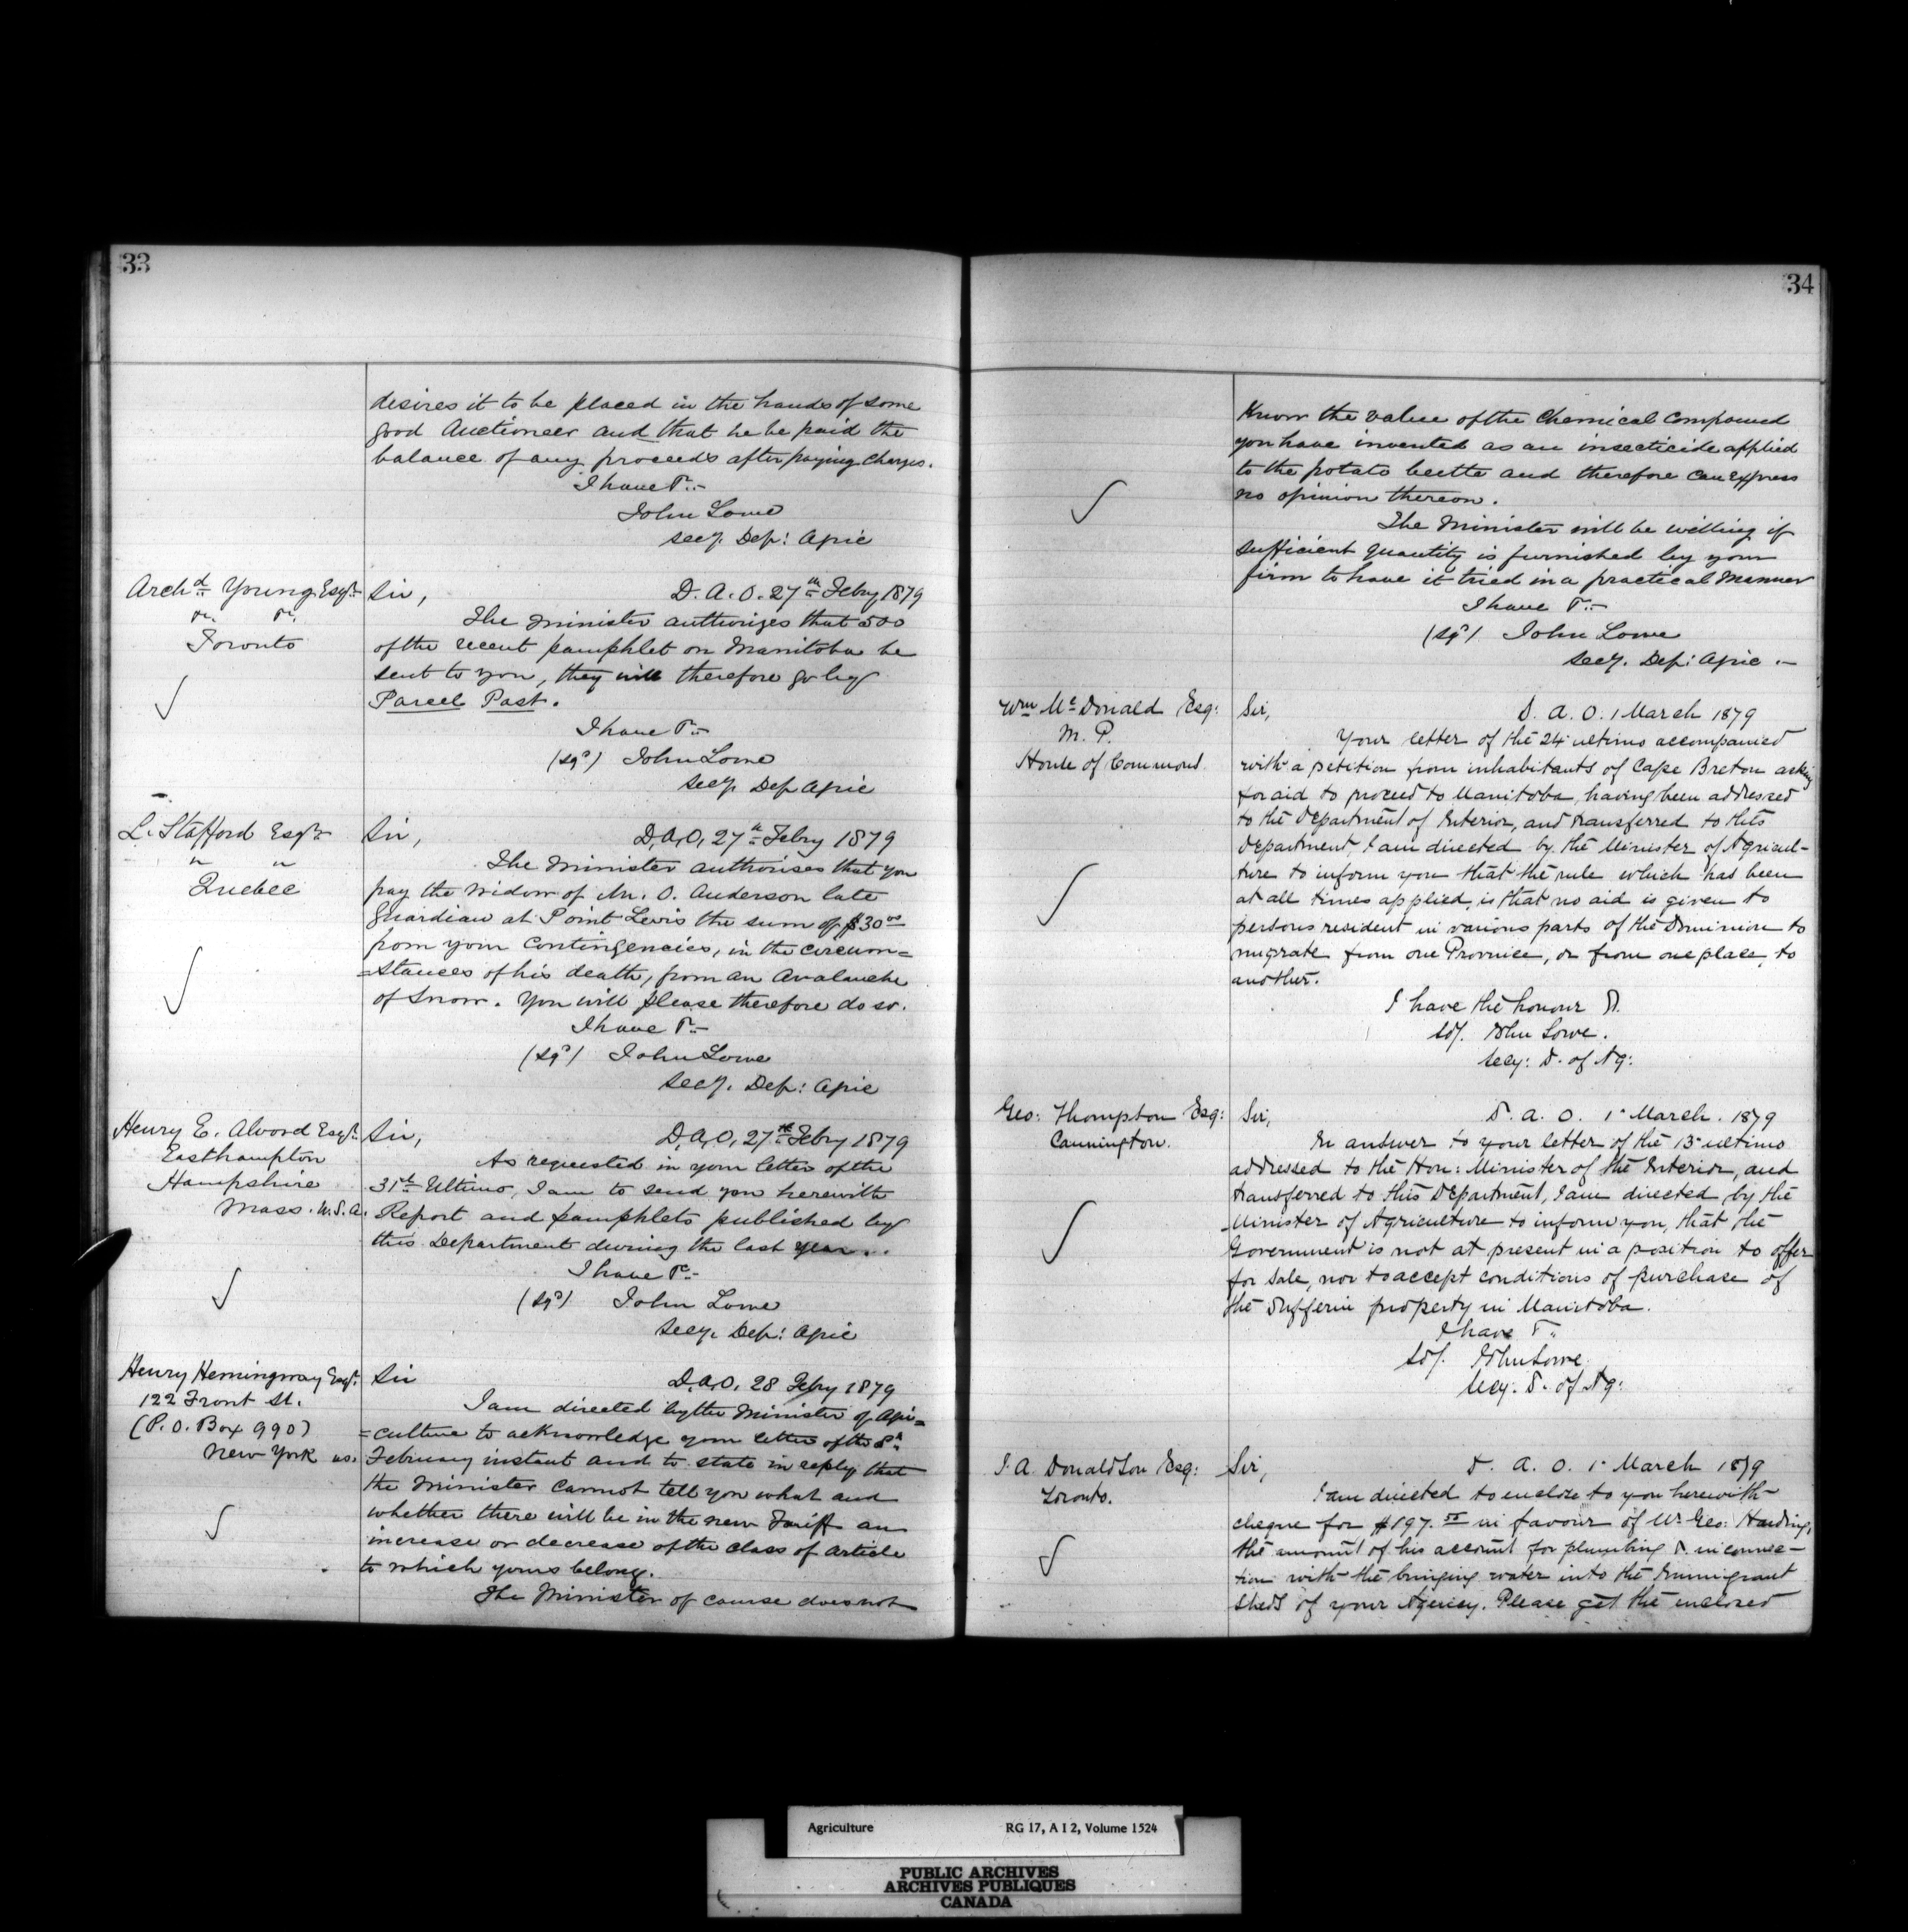 33
desires it to be placed in the hands of some
good Auctioneer and that he be paid the
balance of any proceeds after paying charges.
I have &c.-
John Lowe
Secy. Dep: Agric
Archd Young Esqr.
" "
Toronto
Sir, D. A. O. 27th Febry 1879
The Minister authorizes that 500
of the recent pamphlet on Manitoba be
sent to you, they will therefore go by
Parcel Post.
I have &c.-
(sgd) John Lowe
Secy. Dep Agric
L. Stafford Esqr
" "
Quebec
Sir, D. A. O. 27th Febry 1879
The Minister authorises that you
pay the widow of Mr. O. Anderson late
Guardian at Point Levis the sum of $30 00
from your contingencies, in the circum=
=stances of his death, from an Avalanche
of Snow. You will please therefore do so.
I have &c.-
(sgd) John Lowe
Secy. Dep: Agric
Henry E. Alvord Esqr.
Easthampton
Hampshire
Mass. U.S.A.
Sir, D. A. O. 27th Febry 1879
As requested in your letter of the
31st Ultimo, I am to send you herewith
Report and pamphlets published by
this Department during the last year...
I have &c.-
(sgd) John Lowe
Secy. Dep: Agric
Henry Hemingway Esqr.
122 Front St.
(P.O. Box 990)
New York us.
Sir D. A. O. 28 Febry 1879
I am directed by the Minister of Agri=
=culture to acknowledge your letter of the 8th
February instant and to state in reply that
the Minister cannot tell you what and
whether there will be in the new Tariff an
increase or decrease of the class of article
to which yours belong.
The Minister of course does not
34
Know the value of the Chemical Compound
you have invented as an insecticide applied
to the potato beette and therefore can express
no opinion thereon.
The Minister will be willing if
sufficient quantity is furnished by your
firm to have it tried in a practical Manner
I have &c.-
(sgd) John Lowe
Secy. Dep: Agric.-
Wm McDonald Esq:
M. P.
House of Commons
Sir, D. A. O. 1 March 1879
Your letter of the 24 ultimo accompanied
with a petition from inhabitants of Cape Breton asking
for aid to proceed to Manitoba, having been addressed
to the Department of Interior, and transferred to this
Department, I am directed by the Minister of Agricul-
ture to inform you that the rule which has been
at all times applied, is that no aid is given to
persons resident in various parts of the Dominion to
migrate from one Province, or from one place, to
another.
I have the honour &.
Sd/. John Lowe.
Secy: D. of Ag:
Geo: Thompson Esq:
Cannington.
Sir, D. A. O. 1 March. 1879
In answer to your letter of the 13 ultimo
addressed to the Hon: Minister of the Interior, and
transferred to this Department, I am directed by the
Minister of Agriculture to inform you, that the
Government is not at present in a position to offer
for sale, nor to accept conditions of purchase of
the Dufferin property in Manitoba.
I have &.
Sd/. John Lowe
Secy. D. of Ag:
J. A. Donaldson Esq:
Toronto.
Sir, D. A. O. 1 March 1879
I am directed to enclose to you herewith
cheque for $197. 55 in favour of Mr Geo: Harding,
the amount of his account for plumbing &. in connec-
tion with the bringing water into the Immigrant
Sheds of your Agency. Please get the enclosed
Agriculture RG 17, A I 2, Volume 1524
PUBLIC ARCHIVES
ARCHIVES PUBLIQUES
CANADA